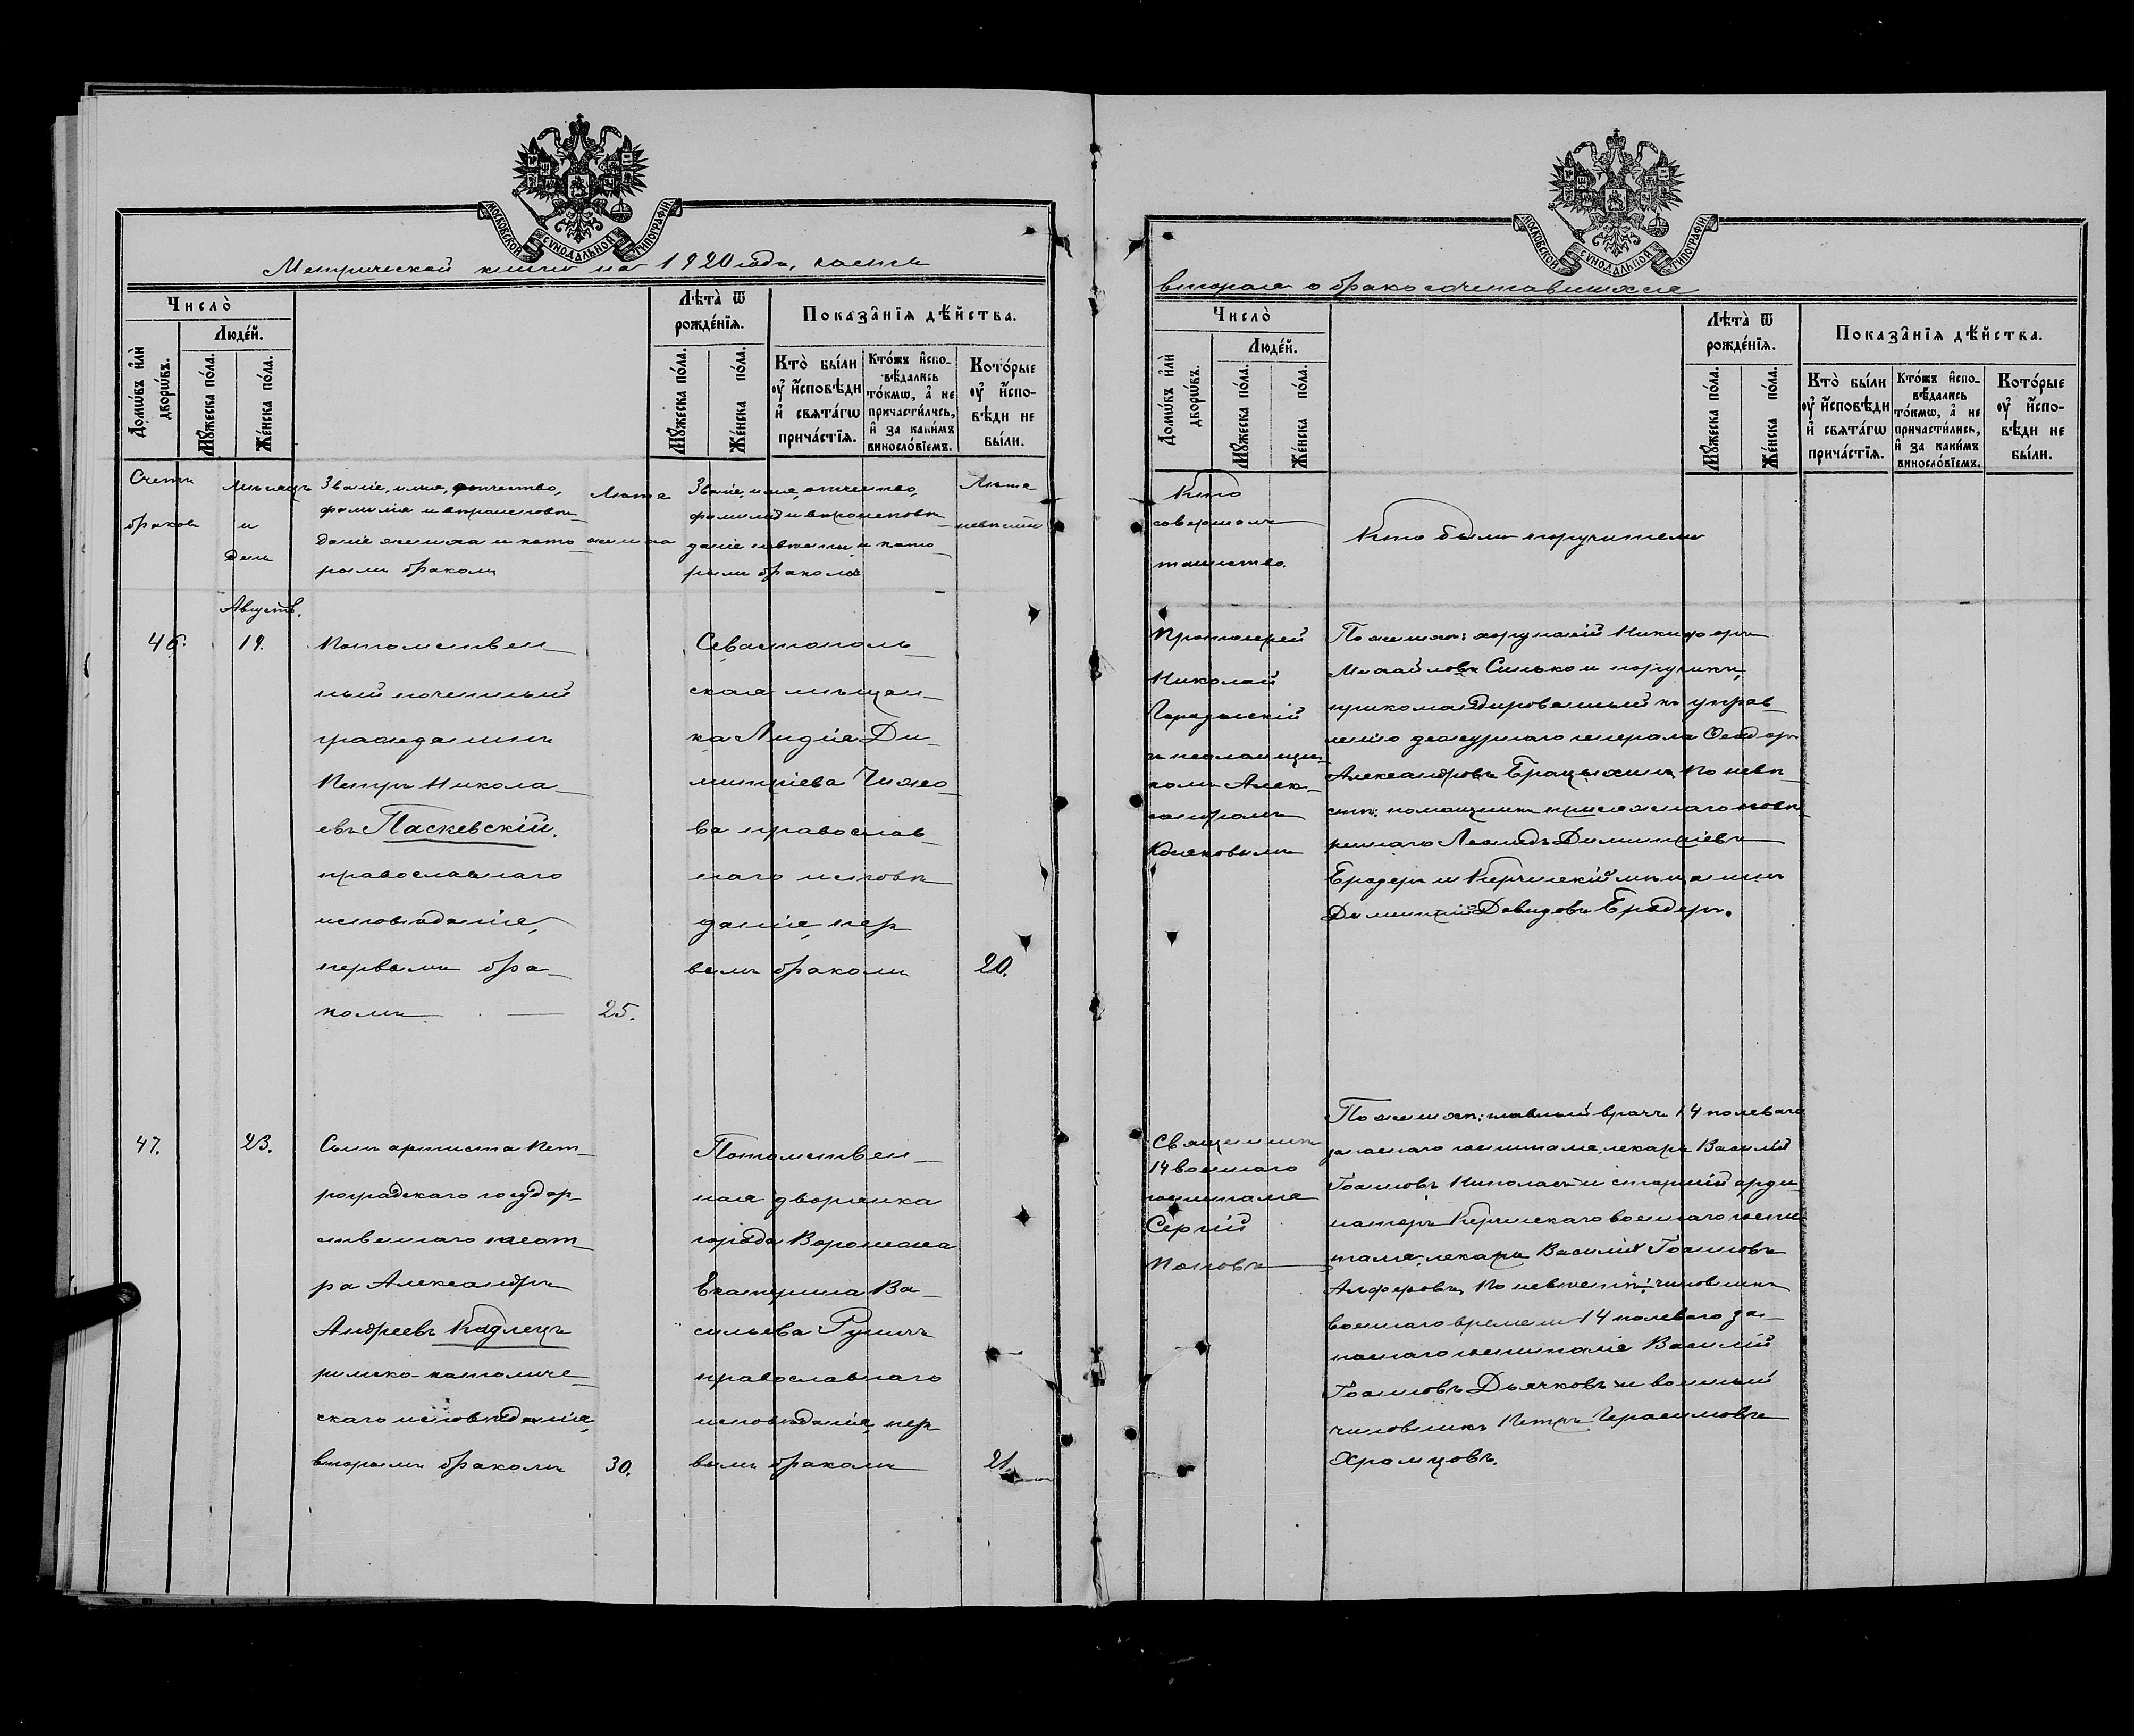 МОСКОВСКОЙ СѴНОДАЛЬНОЙ ТИПОГРАФІИ
Метрической книги на 1920 годъ, часть
Число̀
Люде́й.
Домѡ́въ и҆лѝ дворѡ́въ.
Мꙋ́жеска по́ла.
Же́нска по́ла.
Лѣта̀ ѿ рожде́нїѧ.
Мꙋ́жеска по́ла.
Же́нска по́ла.
Показа̑нїѧ дѣ́йства.
Кто̀ бы́ли ᲂу҆ и҆́сповѣди и҆ свѧта́гѡ прича́стїѧ.
Кто́жъ и҆спо-вѣ́дались то́кмѡ, а҆ не причасти́лись, и҆ за каки́мъ виносло́вїемъ.
Кото́рые ᲂу҆ и҆́спо-вѣди не бы́ли.
Счетъ
браковъ
Мѣсяцъ
и
день
Званіе, имя, отчество,
фамилія и вѣроисповѣ-
даніе жениха и кото-
рымъ бракомъ
Лѣта
жениха
Званіе, имя, отчество,
фамилія и вѣроисповѣ-
даніе невѣсты и кото-
рымъ бракомъ
Лѣта
невѣсты
Августъ.
46.
19.
Потомствен-
ный почетный
гражданинъ
Петръ Никола-
евъ Паскевскій.
православнаго
исповѣданія,
первымъ бра-
комъ
25.
Севастополь-
ская мѣщан-
ка Лидія Ди-
митріева Чижо-
ва православ-
наго исповѣ-
данія, пер-
вымъ бракомъ
20.
47.
23.
Сынъ артиста Пет-
роградскаго государ-
ственнаго театр-
ра Александръ
Андреевъ Кадлецъ
римско-католиче-
скаго исповѣданія,
вторымъ бракомъ
30.
Потомствен-
ная дворянка
города Воронежа
Екатерина Ва-
сильева Рушъ
православнаго
исповѣданія, пер-
вымъ бракомъ
21.
МОСКОВСКОЙ СѴНОДАЛЬНОЙ ТИПОГРАФІИ
вторая о бракосочетавшихся
Число̀
Люде́й.
Домѡ́въ и҆лѝ дворѡ́въ.
Мꙋ́жеска по́ла.
Же́нска по́ла.
Лѣта̀ ѿ рожде́нїѧ.
Мꙋ́жеска по́ла.
Же́нска по́ла.
Показа̑нїѧ дѣ́йства.
Кто̀ бы́ли ᲂу҆ и҆́сповѣди и҆ свѧта́гѡ прича́стїѧ.
Кто́жъ и҆спо-вѣ́дались то́кмѡ, а҆ не причасти́лись, и҆ за каки́мъ виносло́вїемъ.
Кото́рые ᲂу҆ и҆́спо-вѣди не бы́ли.
Кто
совершалъ
таинство.
Кто были поручители
Протоіерей
Николай
съ псаломщи-
комъ Алек-
сандромъ
По женихѣ: хорунжій Никифоръ
Михайловъ Силько и поручикъ,
прикомандированный къ управ-
ленію дежурнаго генерала Ѳеодоръ
Александровъ По невѣ-
стѣ: помощникъ присяжнаго повѣ-
реннаго Леонидъ Димитріевъ
Бродеръ и Керченскій мѣщанинъ
Димитрій Давидовъ Бродеръ.
Священникъ
14 военнаго
госпиталя
Сергій
Поповъ
По женихѣ: главный врачъ 14 полеваго
запаснаго госпиталя, лекарь Василій
Іоанновъ и старшій орди-
наторъ Керченскаго военнаго госпи-
таля, лекарь Василій Іоанновъ
Алферовъ. По невѣстѣ: чиновникъ
военнаго времени 14 полеваго за-
паснаго госпиталя Василій
Іоанновъ Дьячковъ и военный
чиновникъ Петръ Герасимовъ
Хромцовъ.